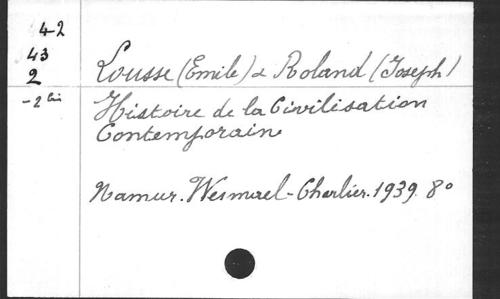 42
43
2
-2 bis
Lousse (Emile) & Roland (Joseph)
Histoire de la Civilisation
Contemporaine
Namur. Wesmael-Charlier. 1939. 8°